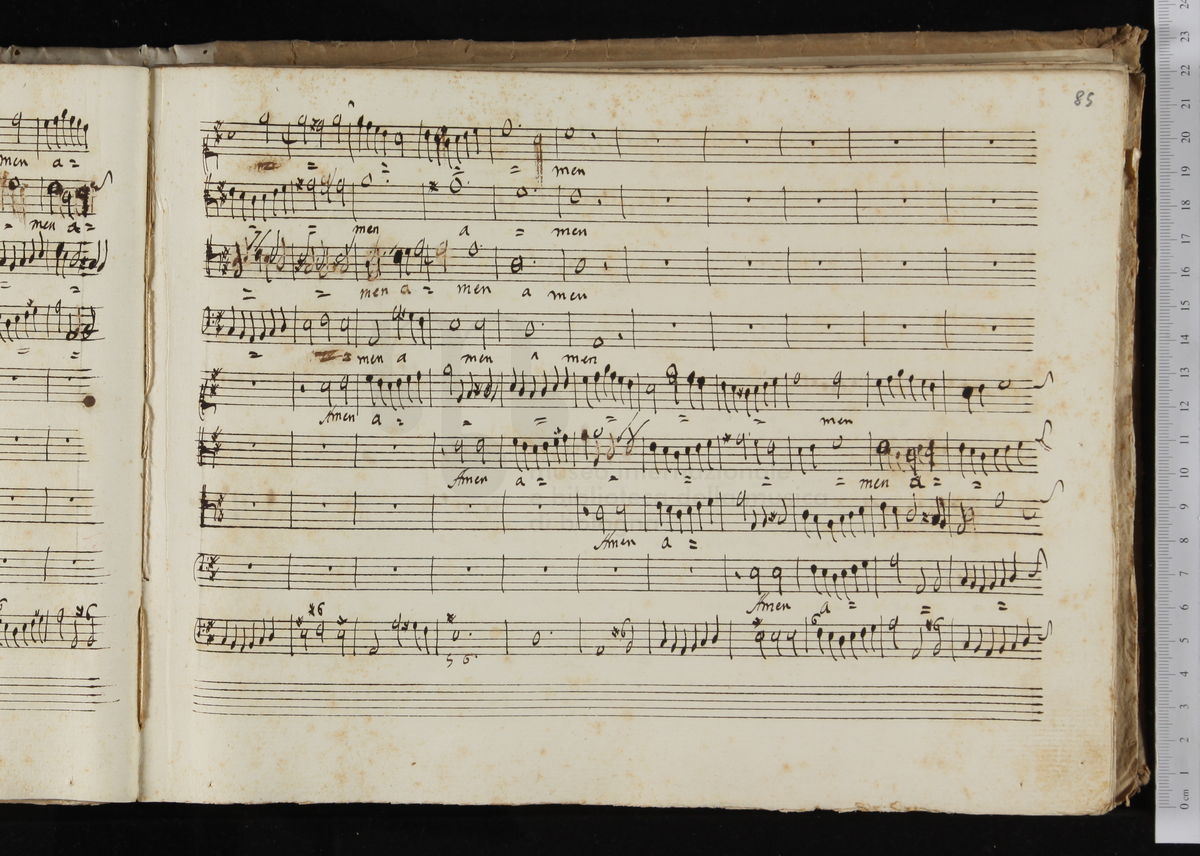 85
men a =
= = = = men
= men a =
= = men a = men
= =
= = men a = men a men
= =
= men a men a men
Amen a = = = = = men
Amen a = = = = = men a = =
Amen a =
Amen a = = =
6 *6 *6 * *6 * 6 *6
5 6